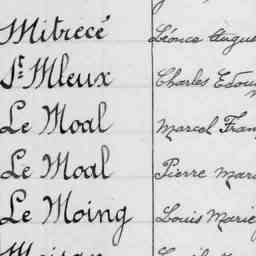 Mitrecé Léonce Augus
St Mleux Charles Edou
Le Moal Marcel Fran
Le Moal Pierre Mar
Le Moing Louis Marie